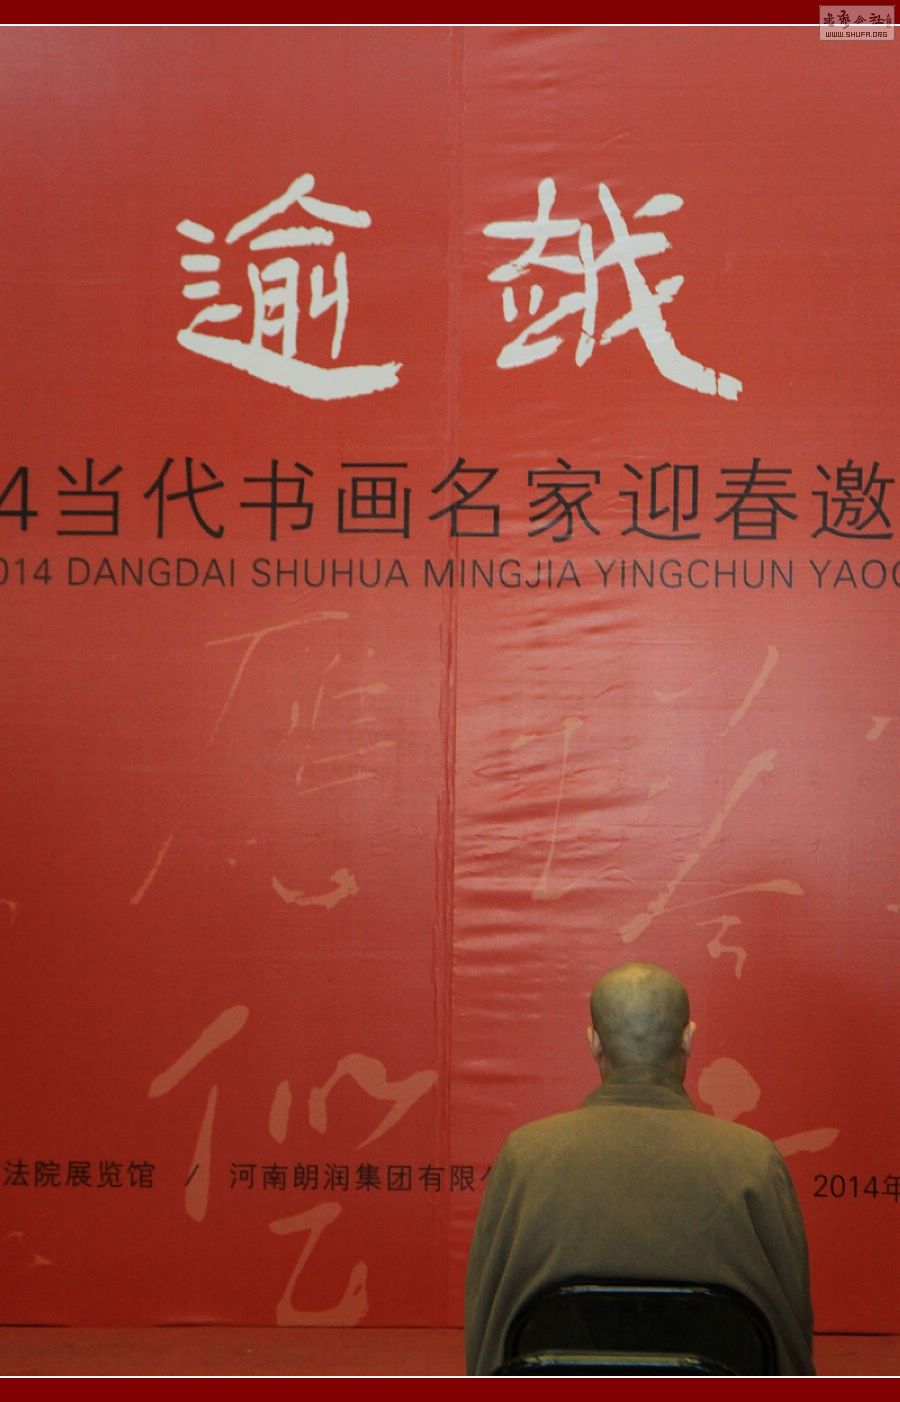 WWW.SHUFA.ORG
逾越
4当代书画名家迎春邀
014 DANGDAI SHUHUA MINGJIA YINGCHUN YAOQ
法院展览馆 / 河南朗润集团有限公
2014年